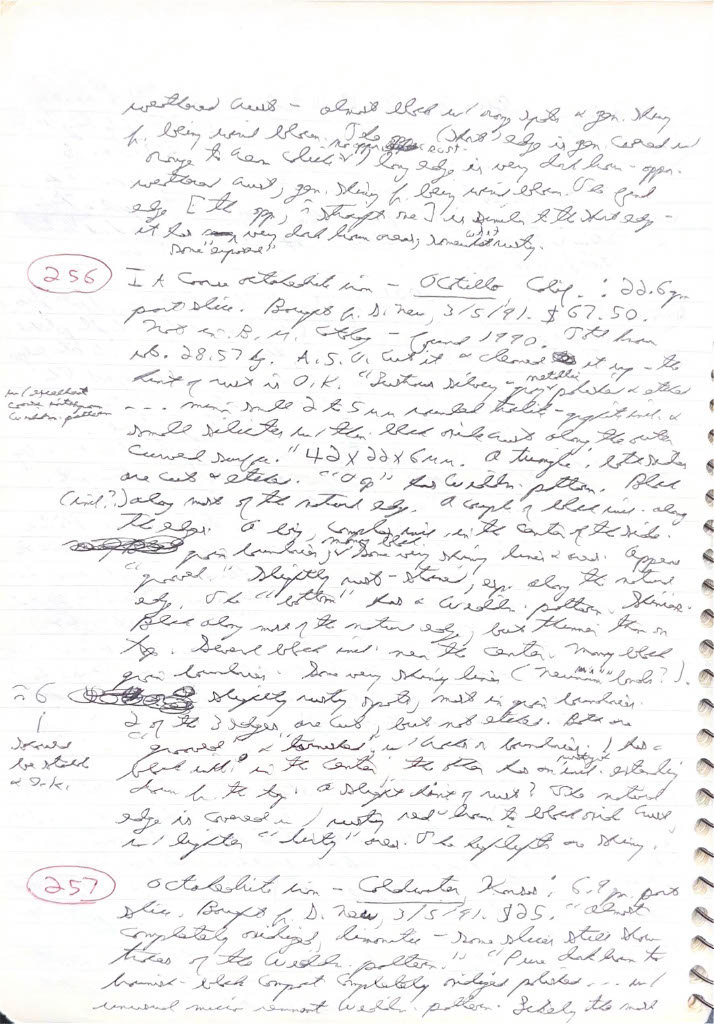 weathered crust - almost black w/ orang spots & gen. shiny
f. being wind blown. The (short) edge is gen. covered w/
orange to long edge is very dark brown - appar.
weathered crust, gen. shiny f. being wind blown. The
edge [the opp, straight one] is similar to the short edge -
it has very dark brown areas, somewhat rusty.
some "exposed"
256
I A Coarse octahedrite iron - Ocotillo Calif.: 22.6 gm
part slice. Bought f. D. New, 3/5/91. $67.50.
Not in B. M. Catalog - found 1990. Total known
wt. 28.57 kg. A. S. U. cut it & cleaned it up - the
hint of rust is O.K. "Lustrous silvery - metallic gray polished & etched
w/ excellent
coarse
Widdm. pattern
.... minor small 2 to 5 mm rounded troilite - graphite incl. &
small silicates w/ thin black oxide crust along the outer
curved surface." 42 X 22 X 6 mm. A triangle, both sides
are cut & etched. has Widdm. pattern. Black
(incl.?) along most of the natural edge. A couple of black incl. along
the edges. A big, complex incl. in the center of the side.
many black
grain boundaries, & some very shiny lines & areas. Appears
"grooved." Slightly rust-stained, esp. along the natural
edge. The "bottom" has a Widdm. pattern. Shinier.
Black along most of the natural edge, but thinner than on
top. Several black incl. near the center. Many black
grain boundaries. Some very shiny lines ( bands?).
slightly rusty spots, most in grain boundaries.
2 of the 3 edges are cut, but not etched. Both are
should
be stable
& O.K.
"grooved" & "tarnished," w/ cracks in boundaries. 1 has a
black incl. in the center, the other has an incl. extending
down f. the top. A slight hint of rust? The natural
edge is covered w/ rusty red-brown to black oxid crust,
w/ lighter "dirty" areas. The highlights are shiny.
257
Octahedrite iron - Coldwater, Kansas; 6.9 gm. part
slice. Bought f. D. New, 3/5/91. $25. "almost
completely oxidized, limonite - some slices still show
traces of the Widdm. pattern." "Pure dark brown to
brownish-black compact completely oxidized polished .... w/
unusual micro remnant Widdm. pattern. Likely the most